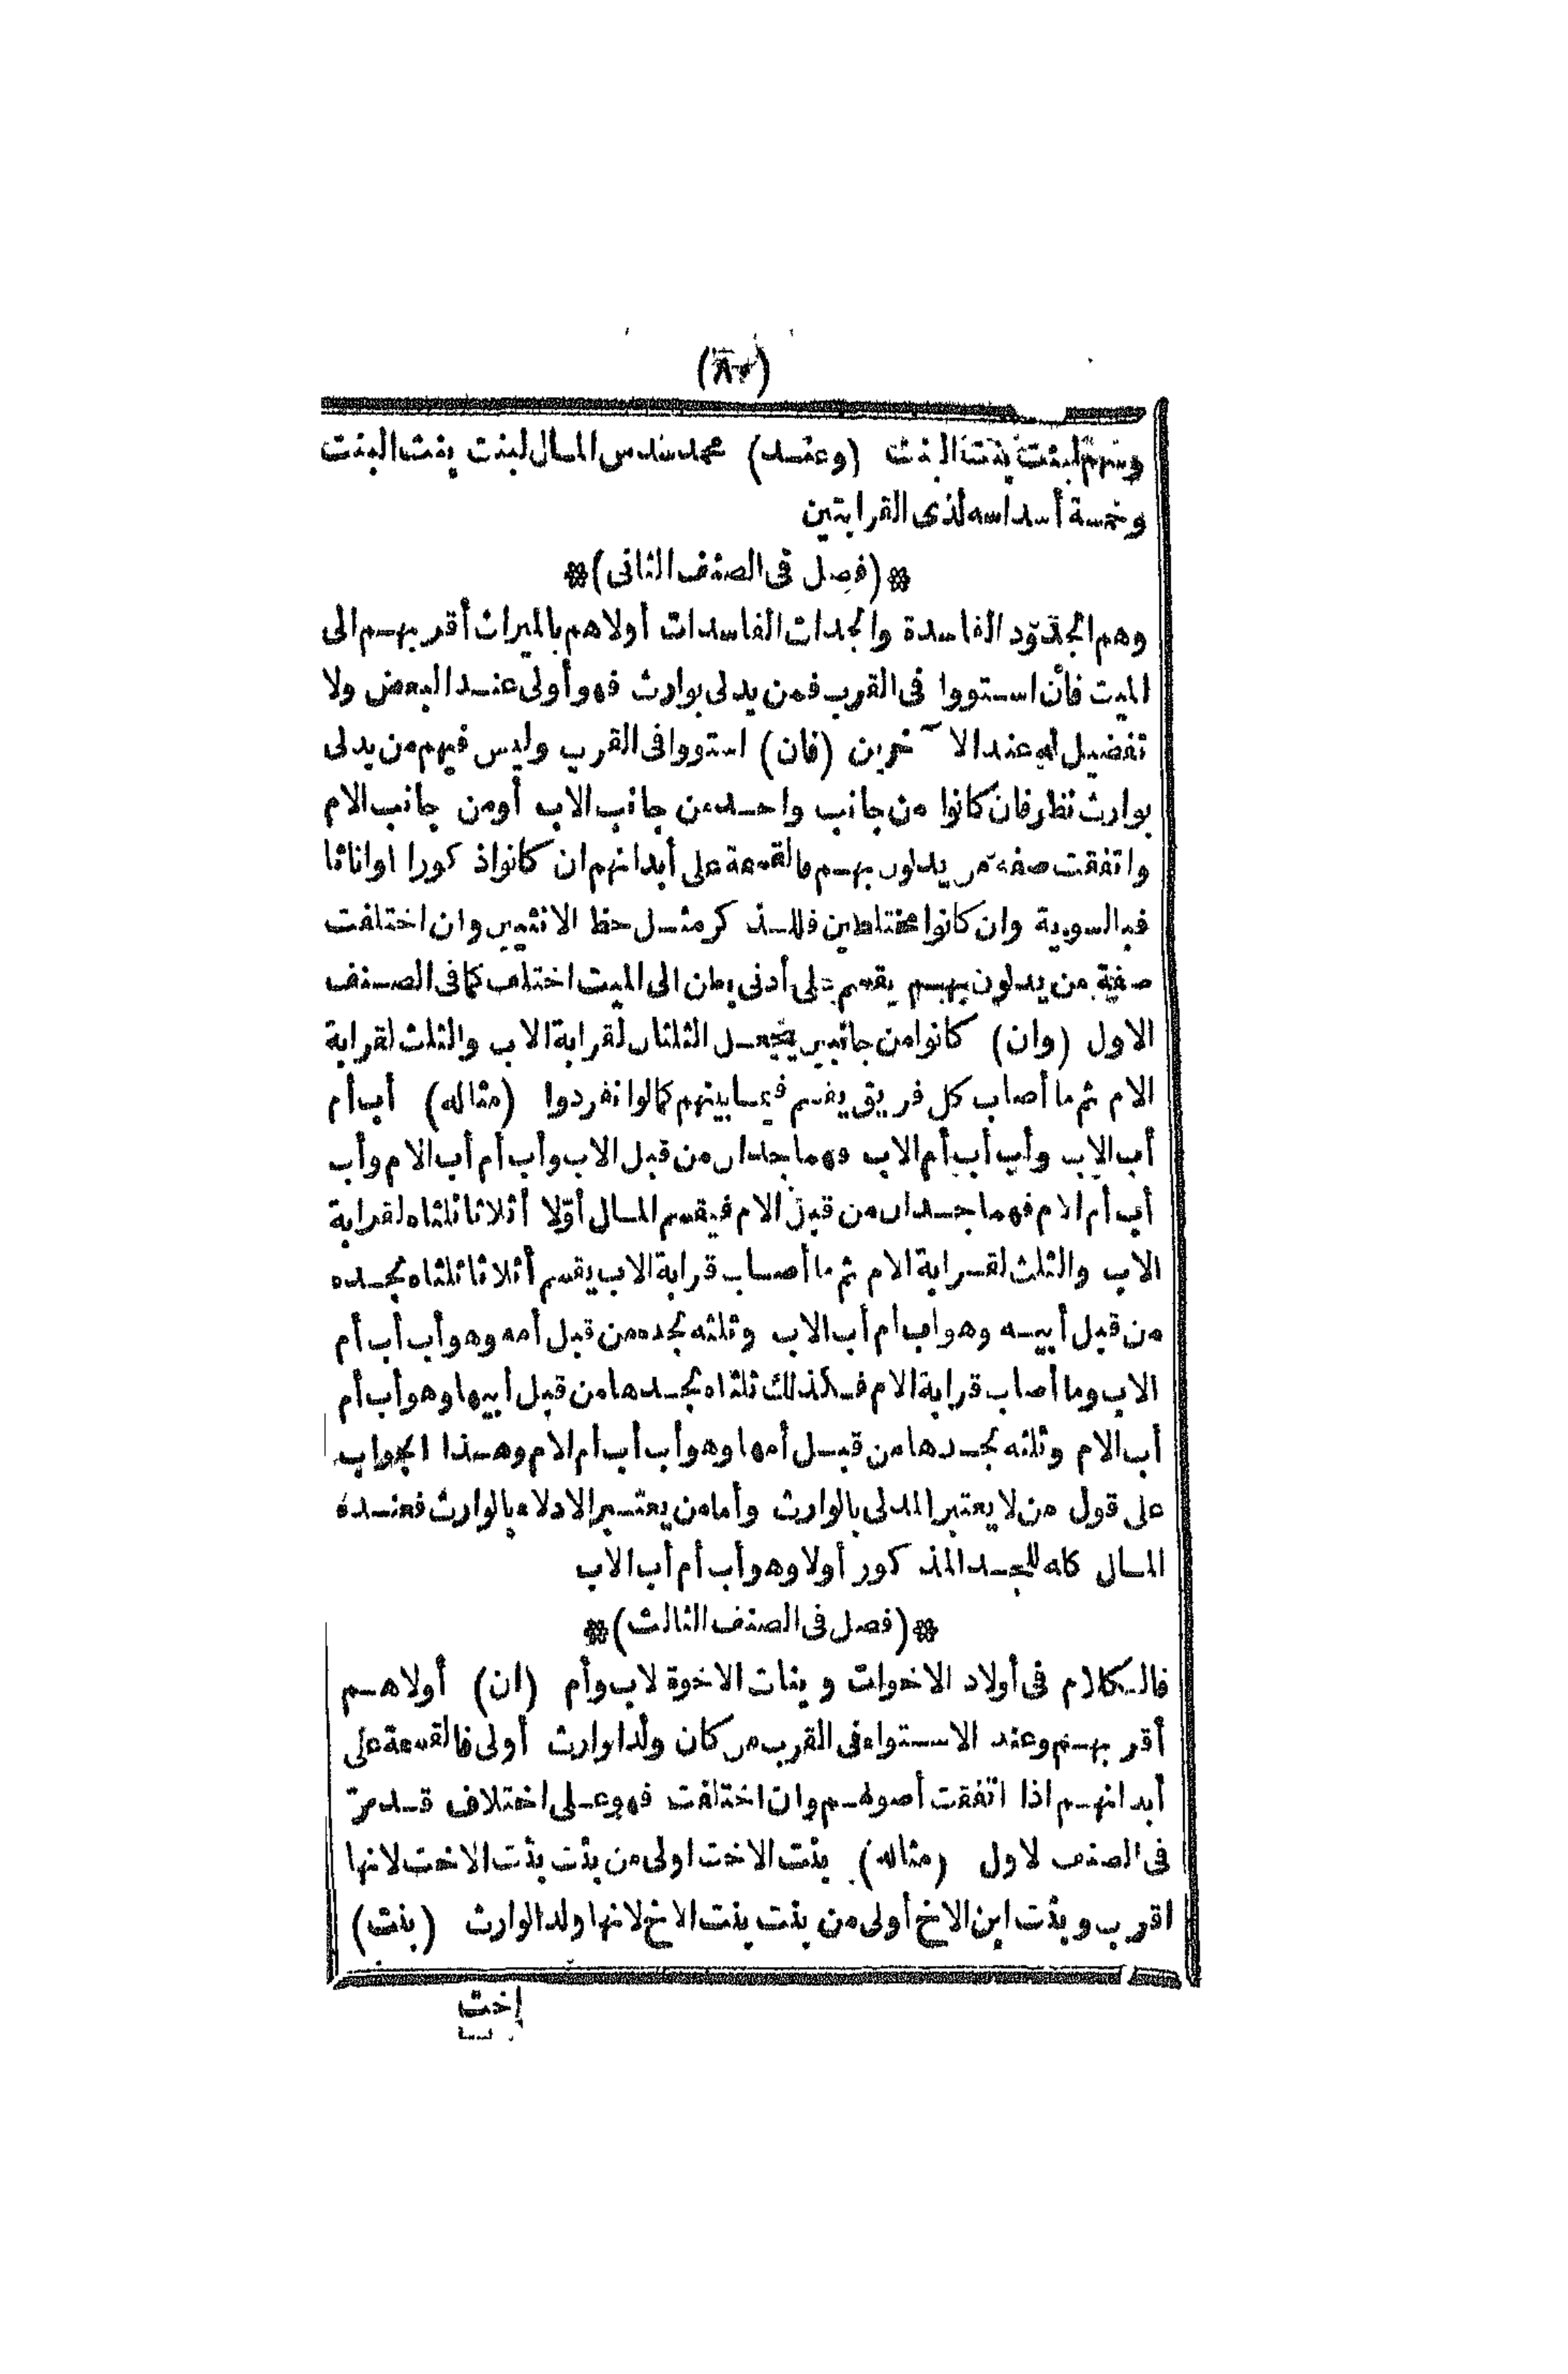 وسهم لبنت بنت البنت (وعند) محمد سدس المال لبنت بنت البنت
وخمسة أسداسه لذى القرابتين
*(فصل فى الصنف الثانى)*
وهم الجدود الفاسدة والجدات الفاسدات أولاهم بالميراث أقربهم الى
الميت فان استووا فى القرب فمن يدلى بوارث فهو أولى عند البعض ولا
تفضيل له عند الآخرين (فان) استووا فى القرب وليس فيهم من يدلى
بوارث نظر فان كانوا من جانب واحد من جانب الاب أومن جانب الام
واتفقت صفة من يدلون بهم فالقسمة على أبدانهم ان كانوا ذكورا اواناثا
فبالسوية وان كانوا مختلطين فللذكر مثل حظ الانثيين وان اختلفت
صفة من يدلون بهم يقسم على أدنى بطن الى الميت اختلف كما فى الصنف
الاول (وان) كانوا من جانبين يجعل الثلثان لقرابة الاب والثلث لقرابة
الام ثم ما أصاب كل فريق يقسم فيما بينهم كما لوا نفردوا (مثاله) أب أم
أب الاب وأب أب أم الاب فهما جدان من قبل الاب وأب أم أب الام وأب
أب أم الام فهما جدان من قبل الام فيقسم المال أوّلا أثلاثا ثلثاه لقرابة
الاب والثلث لقرابة الام ثم ما أصاب قرابة الاب يقسم أثلاثا ثلثاه لجده
من قبل أبيه وهو اب أم أب الاب وثلثه لجده من قبل أمه وهو أب أب أم
الاب وما أصاب قرابة الام فكذلك ثلثاه لجدها من قبل أبيها وهو أب أم
أب الام وثلثه لجدها من قبل أمها وهو أب أب أم الام وهذا الجواب
على قول من لا يعتبر المدلى بالوارث وأما من يعتبر الادلاء بالوارث فعنده
المال كله للجد المذكور أولا وهو أب أم أب الاب
*(فصل فى الصنف الثالث)*
فالكلام فى أولاد الاخوات وبنات الاخوة لاب وأم (ان) أولاهم
أقربهم وعند الاستواء فى القرب من كان ولد الوارث أولى فالقسمة على
أبدانهم اذا اتفقت أصولهم وان اختلفت فهو على اختلاف قد مرّ
فى الصنف لاول (مثاله) بنت الاخت اولى من بنت بنت الاخت لانها
اقرب وبنت ابن الاخ أولى من بنت بنت الاخ لانها ولد الوارث (بنت)
اخت